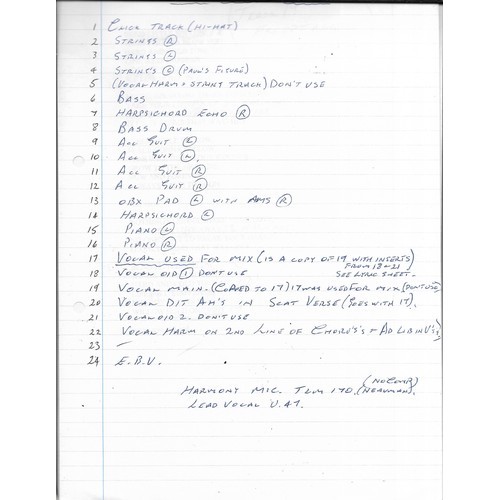 1 CLICK TRACK (HI-HAT)
2 STRINGS (R)
3 STRINGS (L)
4 STRING'S (C) (PAUL'S FIGURE)
5 (VOCAL HARM + STRING TRACK) DON'T USE
6 BASS
7 HARPSICHORD ECHO (R)
8 BASS DRUM
9 ACC GUIT (L)
10 ACC GUIT (L).
11 ACC GUIT (R)
12 ACC GUIT (R)
13 OBX PAD (L) WITH AMS (R)
14 HARPSICHORD (L)
15 PIANO (L)
16 PIANO (R)
17 VOCAL USED FOR MIX (IS A COPY OF 19 WITH INSERTS FROM 18+21
18 VOCAL OLD (1) DONT USE SEE LYRIC SHEET.
19 VOCAL MAIN. (COPIED TO 17) 17 WAS USED FOR MIX (DONT USE
20 VOCAL DIT AH'S IN SCAT VERSE (GOES WITH 17).
21 VOCAL OLD 2. DON'T USE
22 VOCAL HARM ON 2ND LINE OF CHORUS'S + AD LIB IN V's
23 –
24 E.B.V.
HARMONY MIC. TLM 170. (NO COMP) (NEUMAN).
LEAD VOCAL U.47.